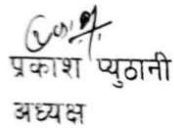 प्रकाश प्युठानी
अध्यक्ष